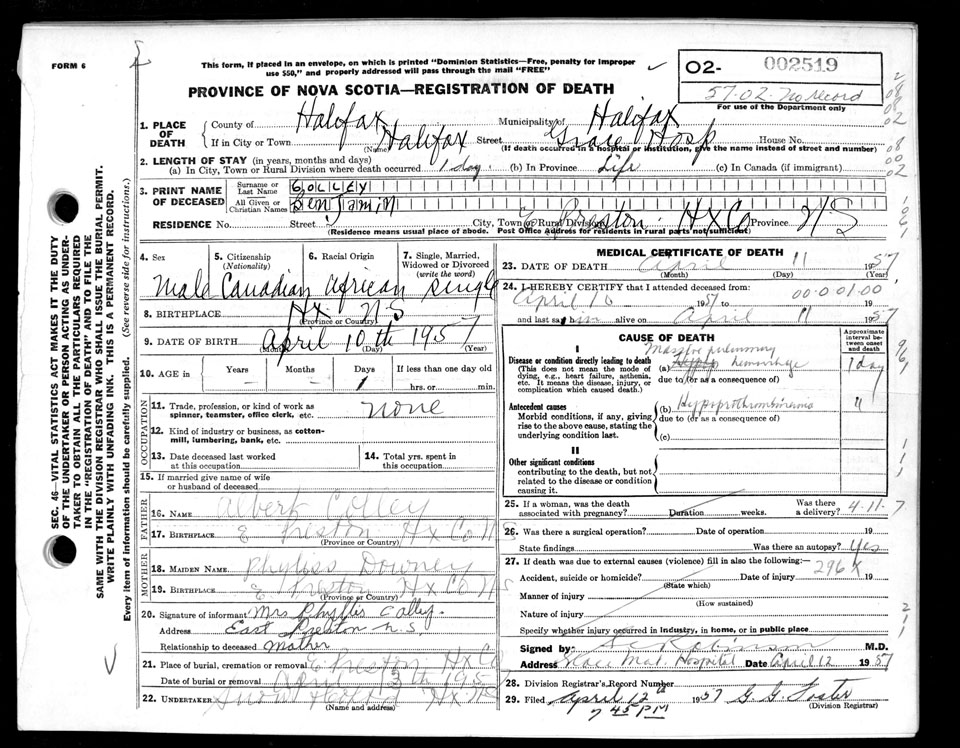 FORM 6
This form, if placed in an envelope, on which is printed "Dominion Statistics—Free, penalty for improper
use $50," and properly addressed will pass through the mail "FREE"
O2- 002519
57-02- No record
For use of the Department only
PROVINCE OF NOVA SCOTIA—REGISTRATION OF DEATH
SEC. 46—VITAL STATISTICS ACT MAKES IT THE DUTY
OF THE UNDERTAKER OR PERSON ACTING AS UNDER-
TAKER TO OBTAIN ALL THE PARTICULARS REQUIRED
IN THE "REGISTRATION OF DEATH" AND TO FILE THE
SAME WITH THE DIVISION REGISTRAR WHO SHALL ISSUE THE BURIAL PERMIT.
WRITE PLAINLY WITH UNFADING INK. THIS IS A PERMANENT RECORD.
Every item of information should be carefully supplied. (See reverse side for instructions.)
1. PLACE OF DEATH
County of Halifax Municipality of Halifax
If in City or Town Halifax Street Grace Hosp House No.
(Name) (If death occurred in a hospital or institution, give the name instead of street and number)
2. LENGTH OF STAY (in years, months and days)
(a) In City, Town or Rural Division where death occurred 1 day (b) In Province Life (c) In Canada (if immigrant)
3. PRINT NAME OF DECEASED
Surname or Last Name COLLEY
All Given or Christian Names Benjamin
RESIDENCE No. Street City, Town or Rural Division E Preston Hx Co Province NS
(Residence means usual place of abode. Post Office Address for residents in rural parts not sufficient)
4. Sex 5. Citizenship (Nationality) 6. Racial Origin 7. Single, Married, Widowed or Divorced (write the word)
Male Canadian African Single
8. BIRTHPLACE Hx NS
(Province or Country)
9. DATE OF BIRTH April 10th 1957
(Month) (Day) (Year)
10. AGE in Years Months Days If less than one day old
- - 1 hrs. or min.
OCCUPATION
11. Trade, profession, or kind of work as spinner, teamster, office clerk, etc. none
12. Kind of industry or business, as cotton-mill, lumbering, bank, etc.
13. Date deceased last worked at this occupation
14. Total yrs. spent in this occupation
15. If married give name of wife or husband of deceased
FATHER
16. NAME Albert Colley
17. BIRTHPLACE E Preston Hx Co NS
(Province or Country)
MOTHER
18. MAIDEN NAME Phyliss Downey
19. BIRTHPLACE E Preston Hx Co NS
(Province or Country)
20. Signature of informant Mrs Phyllis Colley.
Address East Preston N.S.
Relationship to deceased Mother
21. Place of burial, cremation or removal E Preston Hx Co
Date of burial or removal April 13th 195
22. UNDERTAKER Hx NS
(Name and address)
MEDICAL CERTIFICATE OF DEATH
23. DATE OF DEATH April 11 1957
(Month) (Day) (Year)
24. I HEREBY CERTIFY that I attended deceased from:
April 10 1957 to 00.0.01.00 19
and last saw him alive on April 11 1957
CAUSE OF DEATH
Approximate interval between onset and death
I
Disease or condition directly leading to death
(This does not mean the mode of dying, e.g., heart failure, asthenia, etc. It means the disease, injury, or complication which caused death.)
(a) Massive pulmonary hemorrhage 1 day
due to (or as a consequence of)
Antecedent causes
Morbid conditions, if any, giving rise to the above cause, stating the underlying condition last.
(b) Hypoprothrombinemia "
due to (or as a consequence of)
(c)
II
Other significant conditions
contributing to the death, but not related to the disease or condition causing it.
25. If a woman, was the death associated with pregnancy? Duration weeks. Was there a delivery? 4-11-7
26. Was there a surgical operation? Date of operation 19
State findings Was there an autopsy? Yes
27. If death was due to external causes (violence) fill in also the following:—
296X
Accident, suicide or homicide? Date of injury 19
(State which)
Manner of injury
(How sustained)
Nature of injury
Specify whether injury occurred in industry, in home, or in public place
Signed by: Robinson M.D.
Address Grace Mat. Hospital Date April 12 1957
28. Division Registrar's Record Number
29. Filed April 12th 1957 G. G. Foster
7 45 PM (Division Registrar)